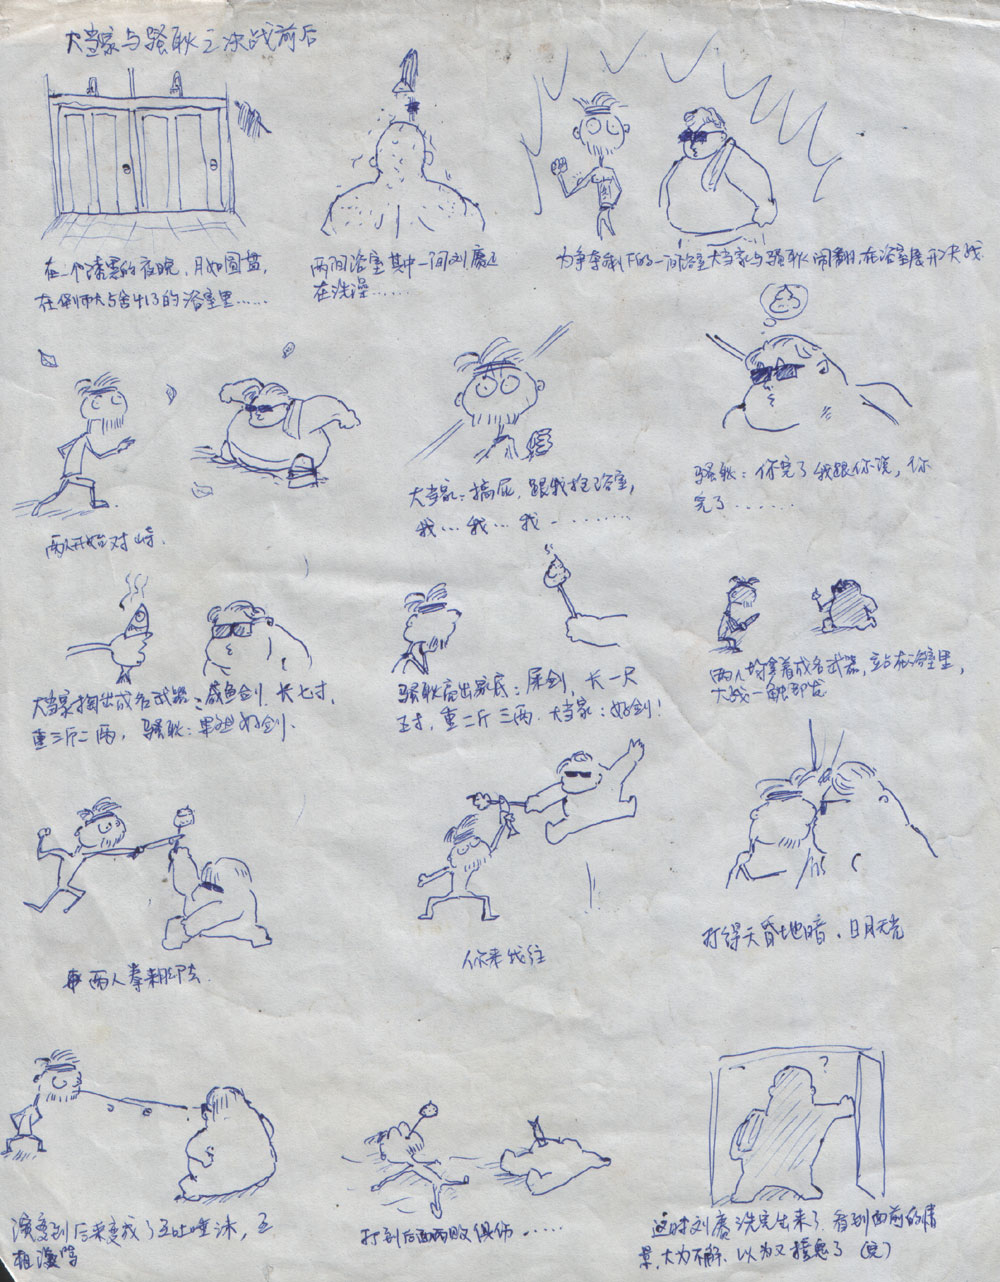 大当家与骚耿之决战前后
在一个漆黑的夜晚，月如圆盘，
在保师大占舍413的浴室里……
两间浴室其中一间刘彦还
在洗澡……
为争夺剩下的一间浴室大当家与骚耿闹翻，在浴室展开决战
两人开始对峙.
大当家：搞屁，跟我抢浴室，
我…我…我………
骚耿：你完了我跟你说，你
完了……
大当家掏出成名武器：咸鱼剑，长七寸，
重三斤二两，骚耿：果然好剑.
骚耿亮出家底：屎剑，长一尺
五寸，重二斤三两. 大当家：好剑！
两人均拿着成名武器，立占在浴室里，
大战一触即发
两人拳来脚去
你来我往
打得天昏地暗，日月无光
演变到后来变成了互吐唾沫，互
相漫骂
打到后面两败俱伤……
这时刘彦洗完出来了，看到面前的情
景，大为不解，以为又
了（完）